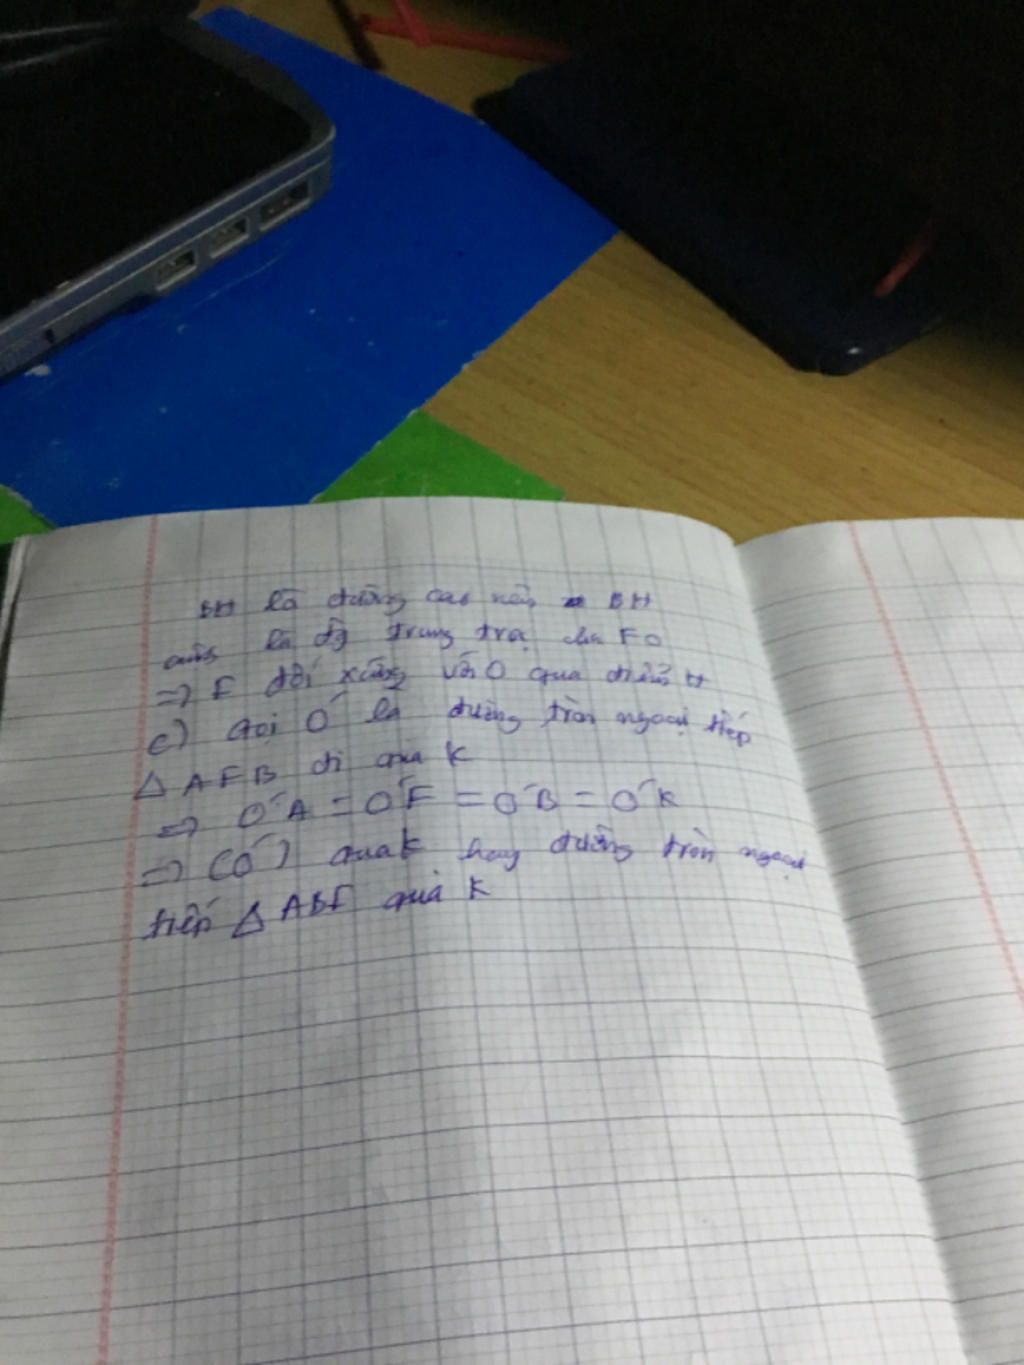 BH là đường cao nên BH
cũng là đg trung trực của FO
=> F đối xứng với O qua điểm H
c) Gọi O' là đường tròn ngoại tiếp
Δ AFB đi qua K
=> O'A = O'F = O'B = O'K
=> (O') qua K hay đường tròn ngoại
tiếp Δ ABF qua K